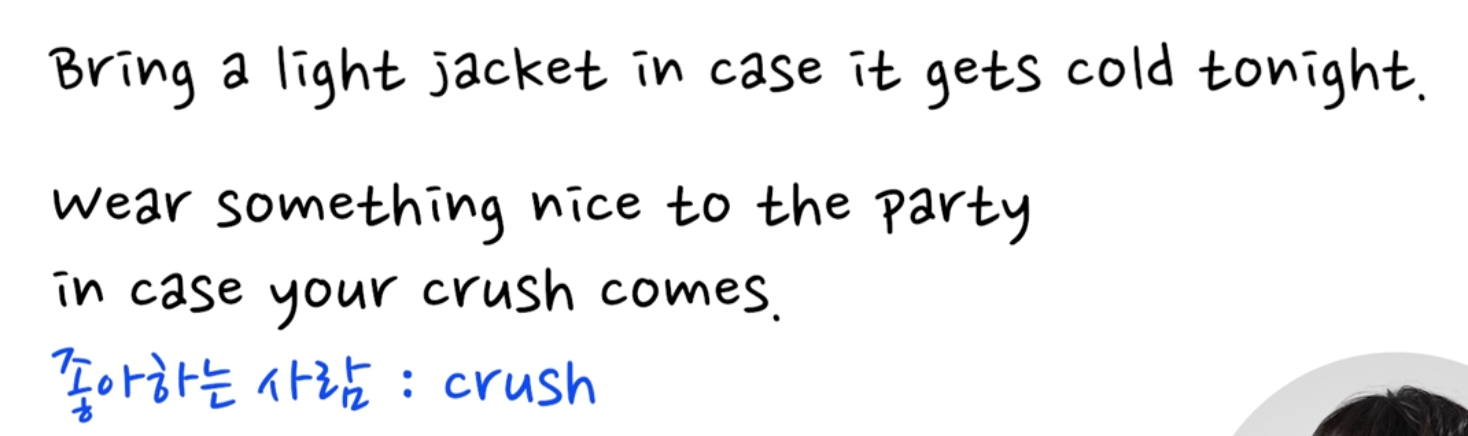 Bring a light jacket in case it gets cold tonight.
Wear something nice to the party
in case your crush comes.
좋아하는 사람 : crush